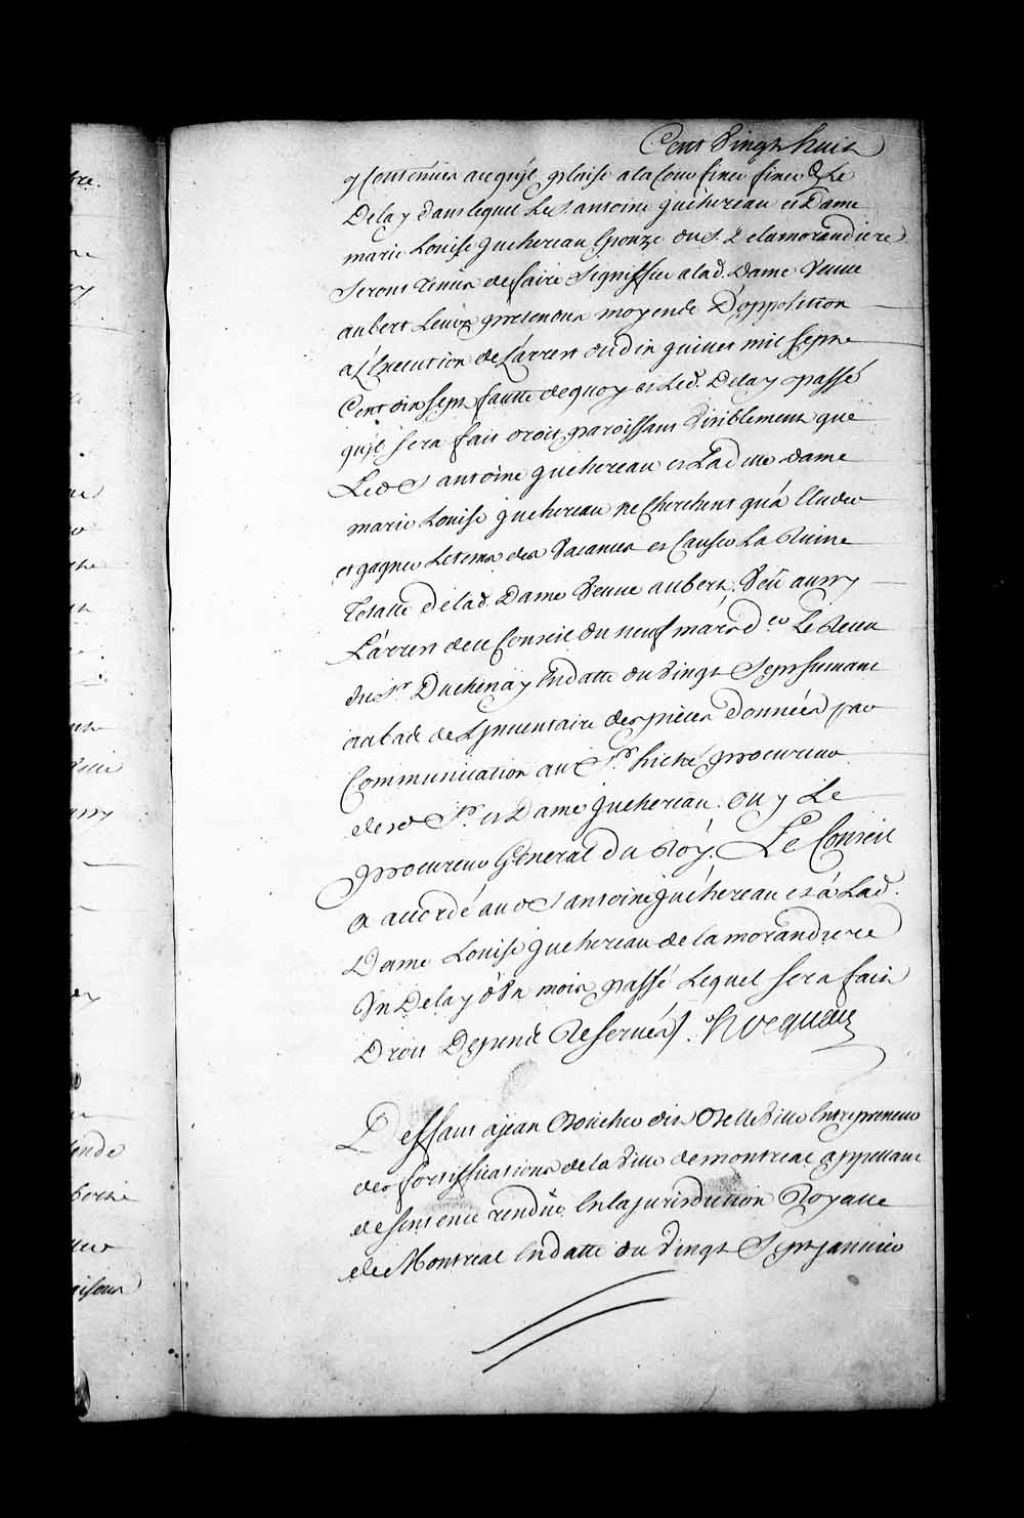 Cent Vingt huit
y Contenües ace quýl plaise ala Cour fixer Le
Delay dans lequel Le S. antoine guéhereau et Dame
marie Louise guehereau Epouze du S. Delamorandiere
Seront Tenus de faire Signiffier alad. Dame Veuve
aubert Leurs pretendus moyens D'opposition
a L'Execution de L'arrest du dix
Cent dix sept fautte dequoy et Led. Delay passé
quýl sera fait droit, paroissant Visiblement que
Led S antoine guehereau et Laditte dame
marie Louise guehereau ne Cherchent qu'a Eluder
et gagner Letems des Vacances et Causer La Ruine
Totalle delad. Dame Veuve aubert. Veü aussy
L'arrest de ce Conseil du neuf mars d.er Le Receu
du S.r Duchenay En datte du Vingt Sept suivant
aubas de L'ynventaire des pièces données par
Communication au S.r hiché procureur
desd S.r et Dame guehereau. ouy Le
procureur Général du Roy. Le Conseil
a accordé aud S antoine guéhereau et à Lad.
Dame Louise guehereau de la morandiere
Un Delay d'Un mois, passé Lequel sera fait
Droit Depens Reservés. Hocquart
Deffaut a jean Boucher dit Belleville Entrepreneur
des fortiffications de la Ville de montreal appellant
de sentence rendüe En la jurisdiction Royalle
de Montreal En datte du Vingt Sept janvier